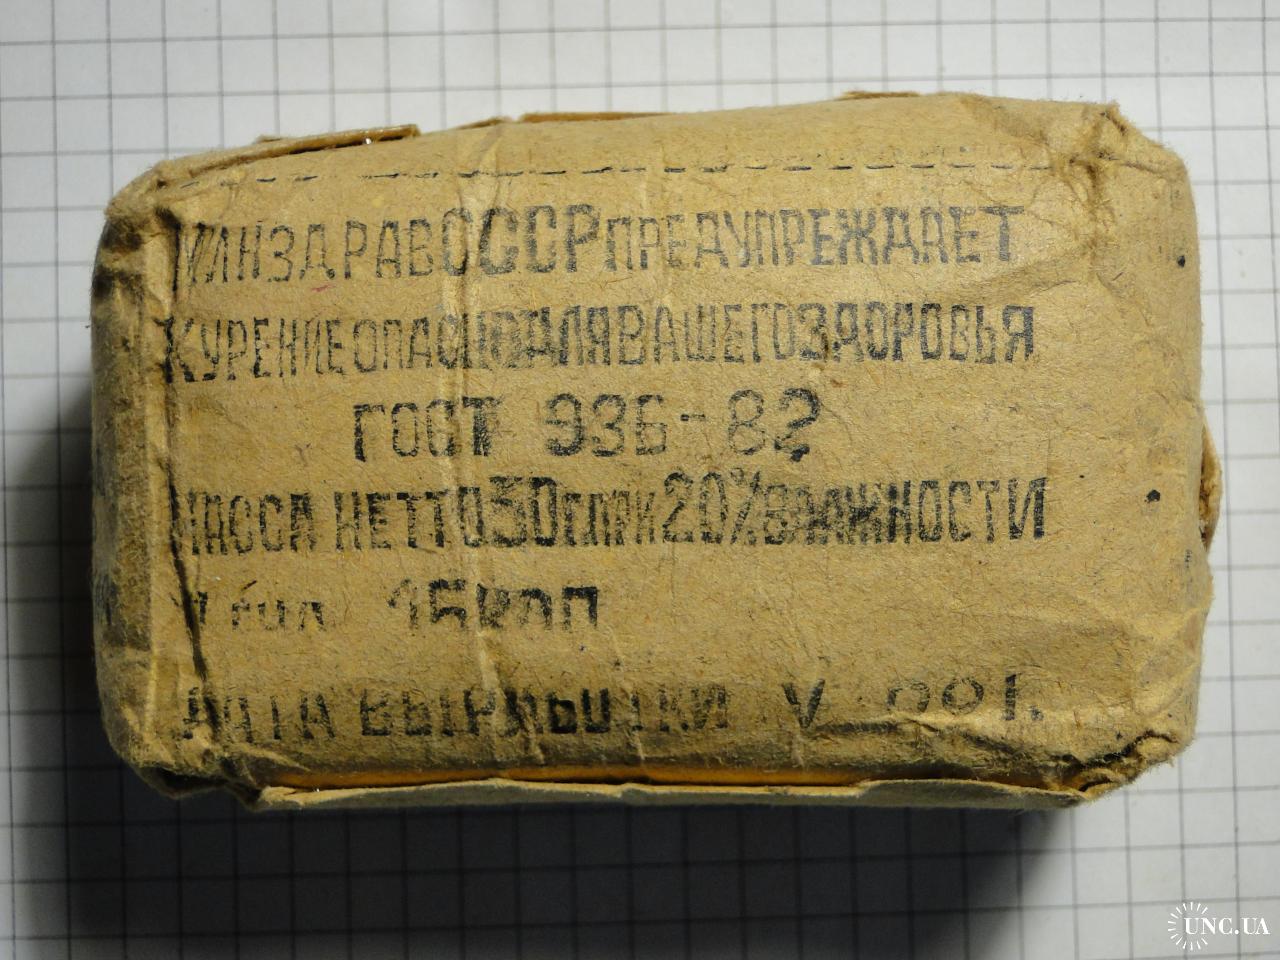 МИНЗДРАВ СССР ПРЕДУПРЕЖДАЕТ
КУРЕНИЕ ОПАСНО ДЛЯ ВАШЕГО ЗДОРОВЬЯ
ГОСТ 936-82
МАССА НЕТТО 50Г ПРИ 20% ВЛАЖНОСТИ
15 КОП
ДАТА ВЫРАБОТКИ V
UNC.UA